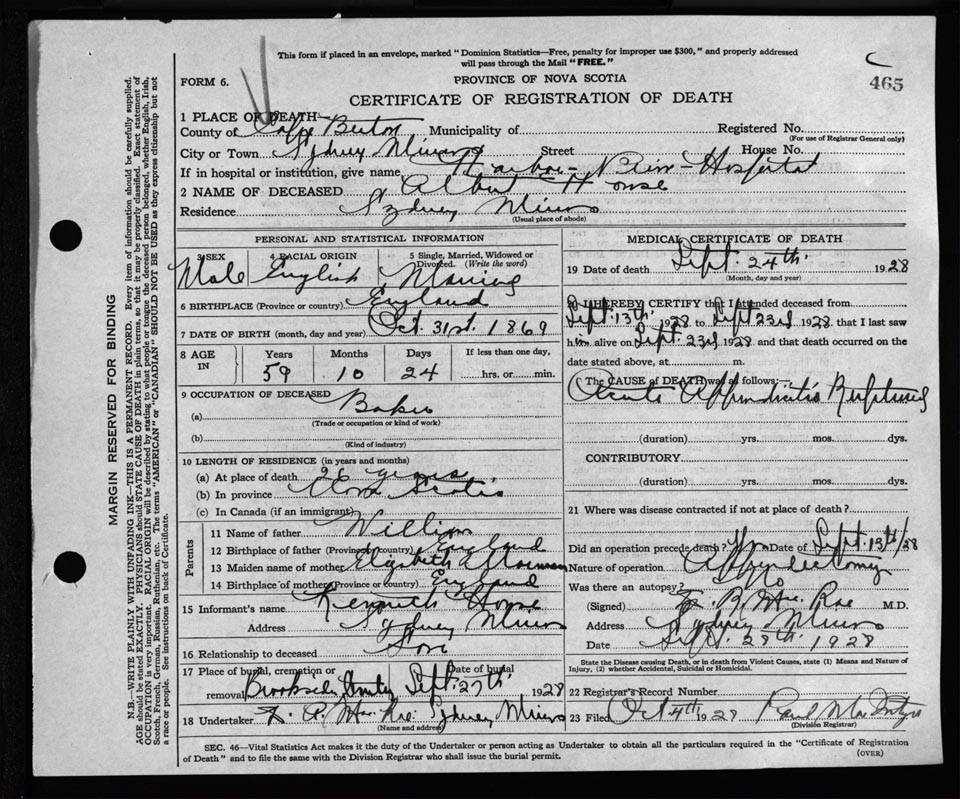 This form if placed in an envelope, marked "Dominion Statistics—Free, penalty for improper use $300," and properly addressed
will pass through the Mail "FREE."
FORM 6.
PROVINCE OF NOVA SCOTIA
465
CERTIFICATE OF REGISTRATION OF DEATH
1 PLACE OF DEATH—
County of Cape Breton Municipality of Registered No.
(For use of Registrar General only)
City or Town Sydney Mines Street House No.
If in hospital or institution, give name Harbour View Hospital
2 NAME OF DECEASED Albert House
Residence Sydney Mines
(Usual place of abode)
PERSONAL AND STATISTICAL INFORMATION
3 SEX 4 RACIAL ORIGIN 5 Single, Married, Widowed or
Divorced. (Write the word)
Male English
6 BIRTHPLACE (Province or country) England
7 DATE OF BIRTH (month, day and year) Oct. 31st. 1869
8 AGE IN Years Months Days If less than one day,
59 10 24 hrs. or min.
9 OCCUPATION OF DECEASED
(a) Baker
(Trade or occupation or kind of work)
(b)
(Kind of industry)
10 LENGTH OF RESIDENCE (in years and months)
(a) At place of death 26 years
(b) In province Nova Scotia
(c) In Canada (if an immigrant)
Parents
11 Name of father William
12 Birthplace of father (Province or country) England
13 Maiden name of mother Elizabeth
14 Birthplace of mother (Province or country) England
15 Informant's name Kenneth House
Address Sydney Mines
16 Relationship to deceased Son
17 Place of burial, cremation or removal Date of burial
Sept. 27th. 1928
18 Undertaker Sydney Mines
(Name and address)
MEDICAL CERTIFICATE OF DEATH
19 Date of death Sept. 24th. 1928
(Month, day and year)
20 I HEREBY CERTIFY that I attended deceased from
Sept. 13th. 1928 to Sept 23rd 1928, that I last saw
him alive on Sept. 23rd 1928 and that death occurred on the
date stated above, at m.
The CAUSE OF DEATH was as follows:—
Acute Appendicitis Ruptured
(duration) yrs. mos. dys.
CONTRIBUTORY
(duration) yrs. mos. dys.
21 Where was disease contracted if not at place of death?
Did an operation precede death? Yes Date of Sept. 13th/28
Nature of operation Appendectomy
Was there an autopsy? No
(Signed) Mac Rae M.D.
Address Sydney Mines
Date Sept. 28th. 1928
State the Disease causing Death, or in death from Violent Causes, state (1) Means and Nature of
Injury, (2) whether Accidental, Suicidal or Homicidal.
22 Registrar's Record Number
23 Filed Oct 4th 1928
(Division Registrar)
SEC. 46—Vital Statistics Act makes it the duty of the Undertaker or person acting as Undertaker to obtain all the particulars required in the "Certificate of Registration
of Death" and to file the same with the Division Registrar who shall issue the burial permit.
(OVER)
MARGIN RESERVED FOR BINDING
N.B.—WRITE PLAINLY WITH UNFADING INK—THIS IS A PERMANENT RECORD. Every item of information should be carefully supplied.
AGE should be stated EXACTLY. PHYSICIANS should STATE CAUSE OF DEATH in plain terms, so that it may be properly classified. Exact statement of
OCCUPATION is very important. RACIAL ORIGIN will be described by stating to what people or tongue the deceased person belonged, whether English, Irish,
Scotch, French, German, Russian, Ruthenian, etc. The terms "AMERICAN" or "CANADIAN" SHOULD NOT BE USED as they express citizenship but not
a race or people. See instructions on back of Certificate.